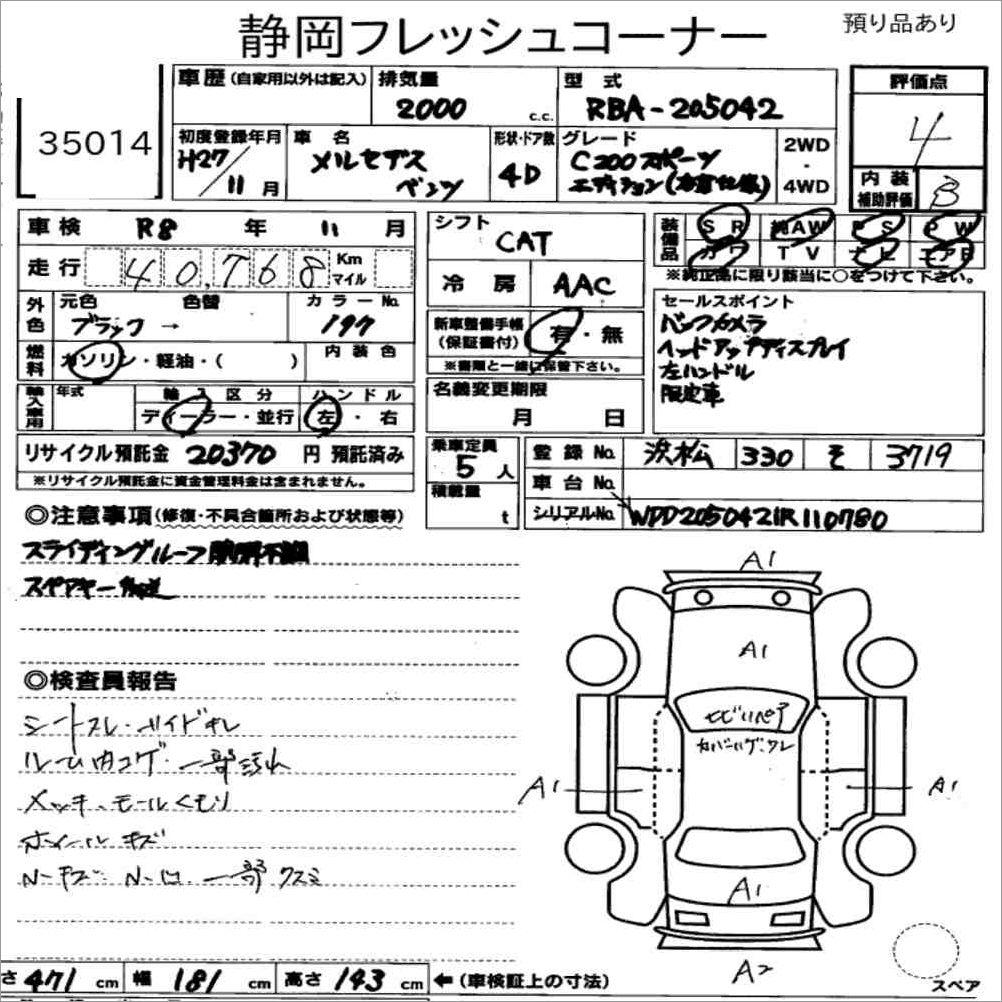 静岡フレッシュコーナー
預り品あり
35014
車歴(自家用以外は記入)
排気量 2000 c.c.
型式 RBA-205042
評価点 4
初度登録年月 H27/11月
車名 メルセデスベンツ
形状・ドア数 4D
グレード C200スポーツ
エディション(
2WD・4WD
内装補助評価 B
車検 R8年 11月
走行 40,768 Km マイル
外色 元色 ブラック → 色替 カラーNo. 197
燃料 ガソリン・軽油・( ) 内装色
輸入車用 年式 輸入区分 ディーラー・並行 ハンドル 左・右
リサイクル預託金 20370円 預託済み
※リサイクル預託金に資金管理料金は含まれません。
シフト CAT
冷房 AAC
新車整備手帳(保証書付) 有・無
※書類と一緒に保管下さい。
名義変更期限 月 日
装備品 SR 純AW PS PW
カワ TV ナビ エアB
※純正品に限り該当に○をつけて下さい。
セールスポイント
バックカメラ
ヘッドアップディスプレイ
左ハンドル
限定車
乗車定員 5人
積載量 t
登録No. 浜松 330 そ 3719
車台No.
シリアルNo. WDD2050421R110780
◎注意事項(修復・不具合箇所および状態等)
スライディングルーフ
スペアキー
◎検査員報告
シートスレ・
ルーム内コゲ・一部汚れ
メッキ、モールくもり
ホイールキズ
一部クスミ
A1
A1
ヒビリペア
カバーハゲ・ワレ
A1
A1
A1
A2
スペア
さ 471cm 幅 181cm 高さ 143cm ←(車検証上の寸法)